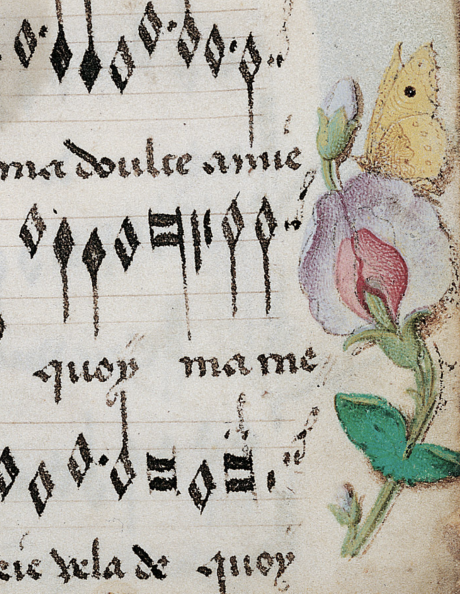 ma doulce amie
quoy mame
vela de quoy